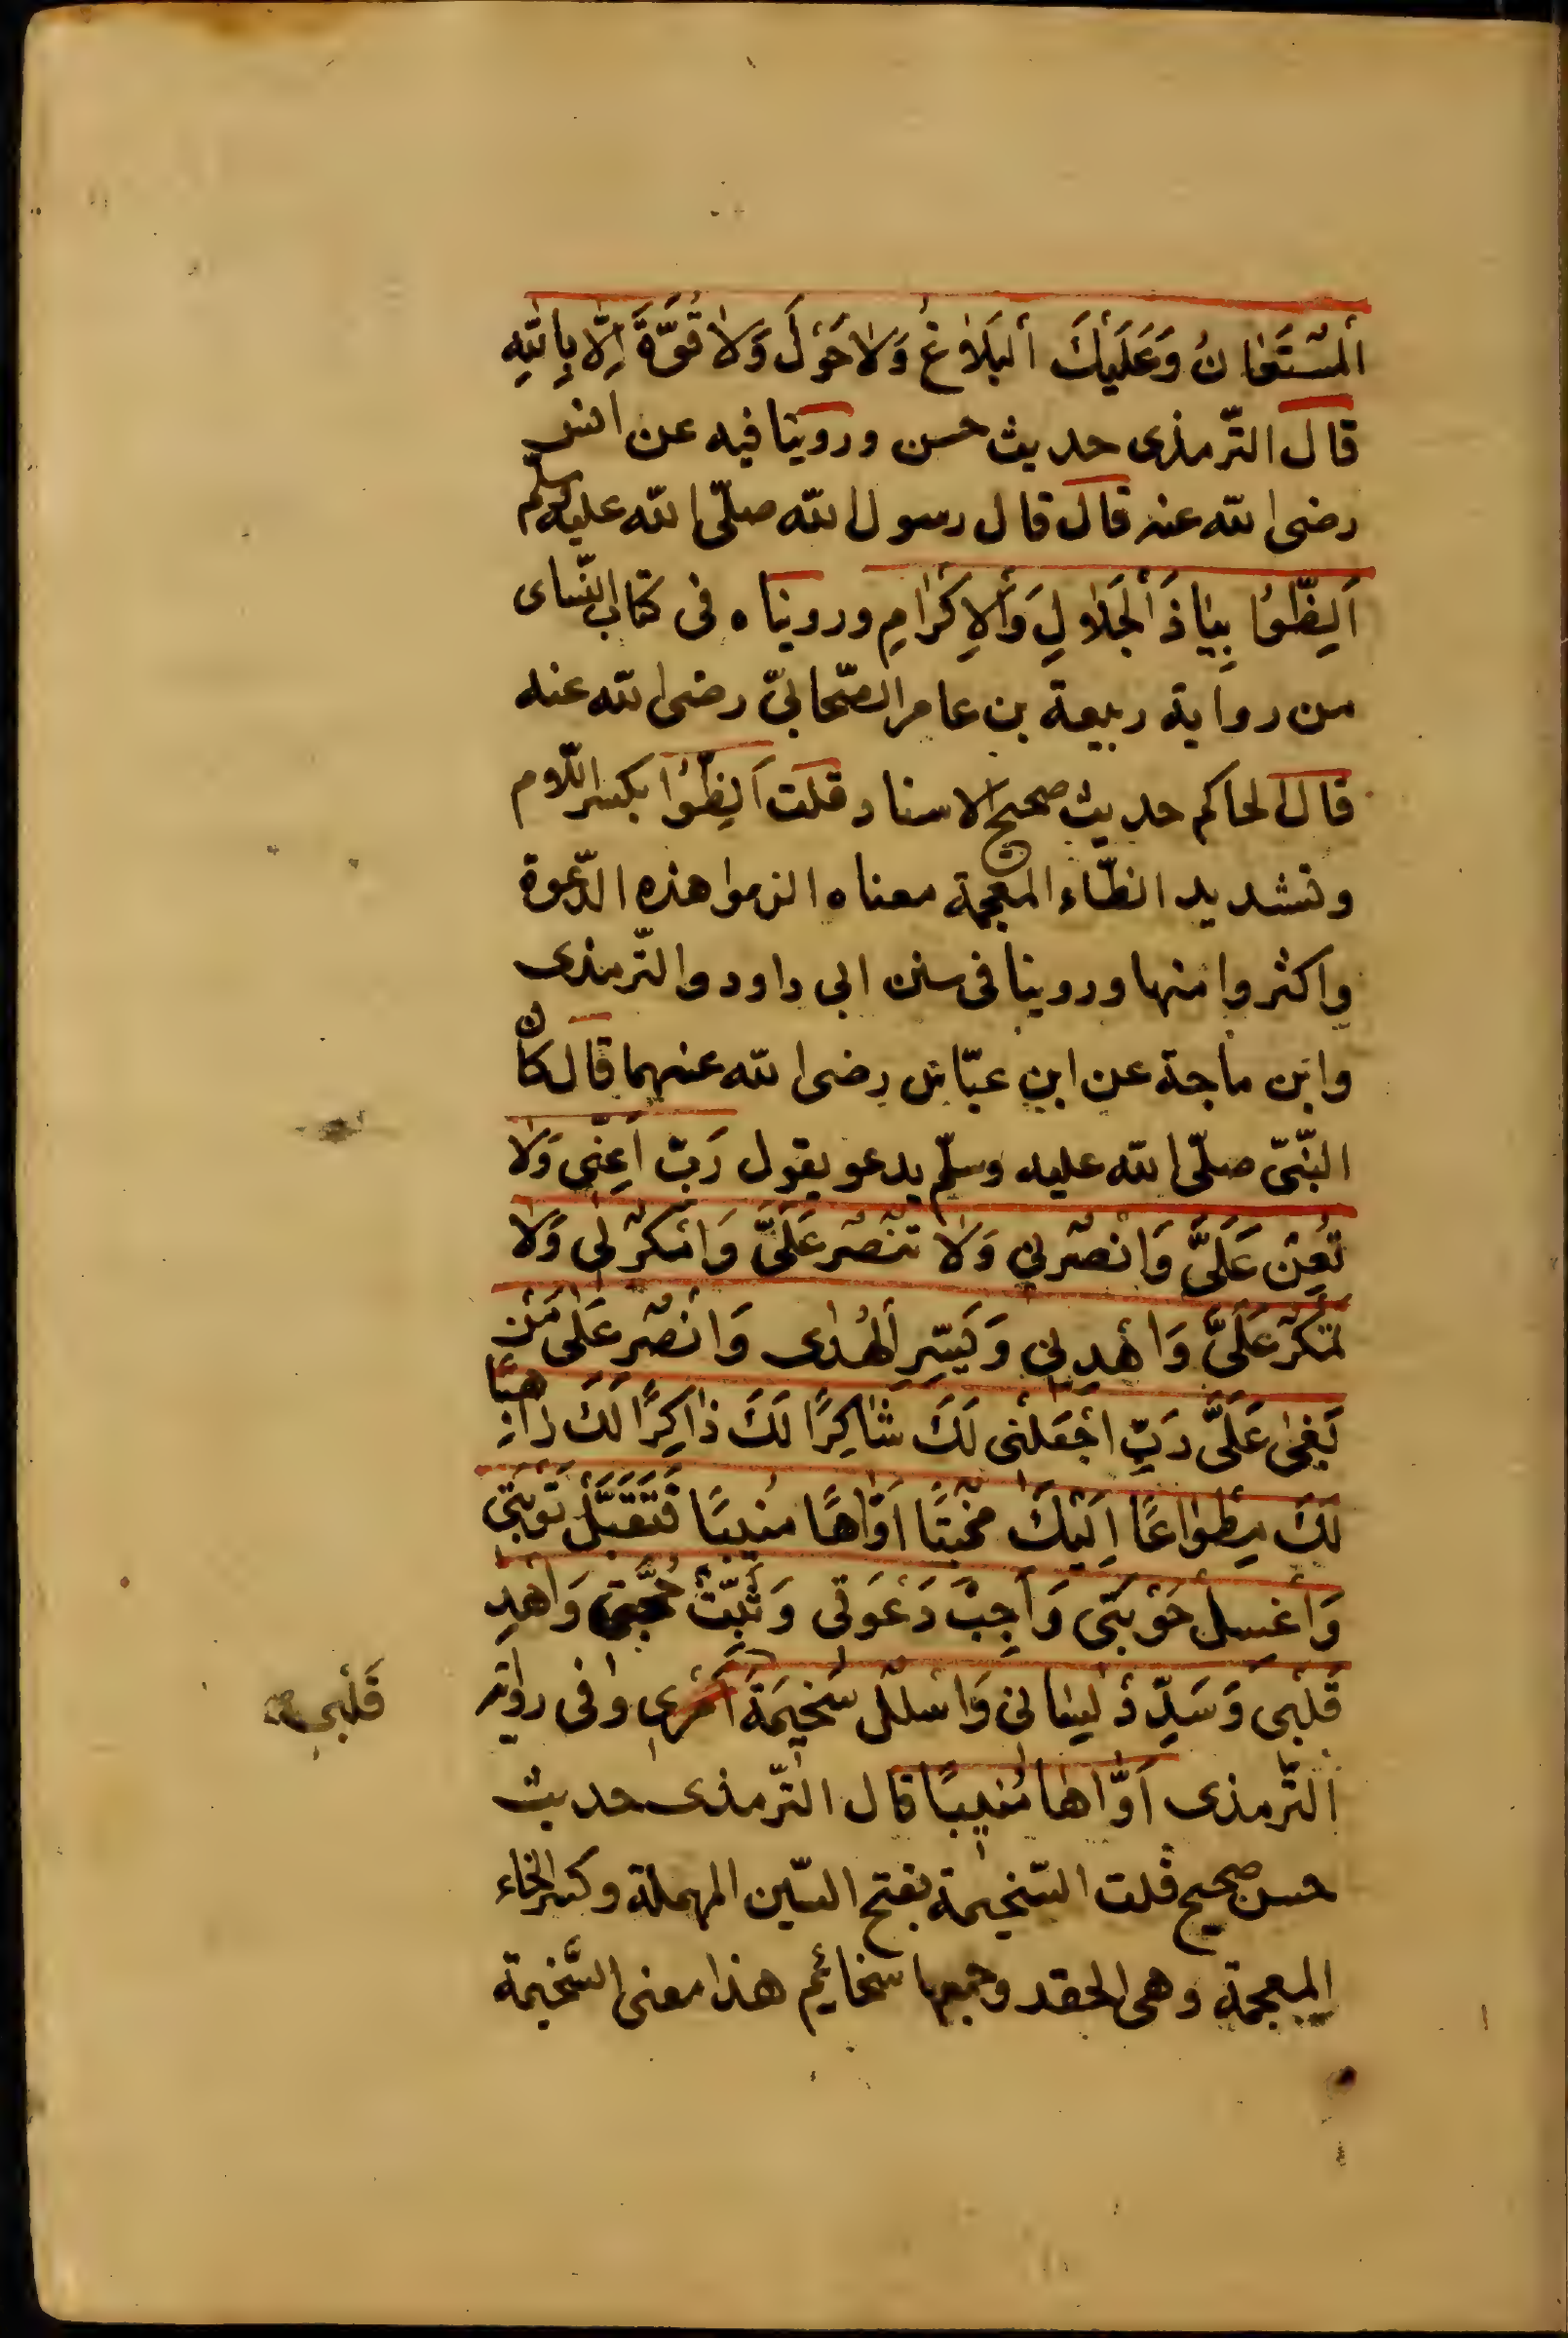 اَلْمُسْتَعَانُ وَعَلَيْكَ اَلْبَلَاغُ وَلَا حَوْلَ وَلَا قُوَّةَ اِلَّا بِاللّٰهِ
قال الترّمذى حديث حسن وروينا فيه عن انس
رضى الله عنه قال قال رسول الله صلّى الله عليه وسلم
اَلِظُّوا بِيَاذَا الْجَلَالِ وَالْاِكْرَامِ ورويناه فى كتاب النّساى
من رواية ربيعة بن عامر الصّحابىّ رضى الله عنه
قال الحاكم حديث صحيح الاسناد قلت اَلِظُّوا بكسر اللّام
وتشديد الظّاء المعجمة معناه الزموا هذه الدّعوة
واكثروا منها وروينا فى سنن ابى داود والترّمذى
وابن ماجة عن ابن عبّاس رضى الله عنهما قال كان
النّبىّ صلّى الله عليه وسلّم يدعو يقول رَبِّ اَعِنِّى وَلَا
تُعِنْ عَلَىَّ وَانْصُرْنِى وَلَا تَنْصُرْ عَلَىَّ وَامْكُرْ لِى وَلَا
تَمْكُرْ عَلَىَّ وَاهْدِنِى وَيَسِّرِ الْهُدٰى وَانْصُرْ عَلٰى مَنْ
بَغٰى عَلَىَّ رَبِّ اجْعَلْنِى لَكَ شَاكِرًا لَكَ ذَاكِرًا لَكَ رَاهِبًا
لَكَ مِطْوَاعًا اِلَيْكَ مُخْبِتًا اَوَّاهًا مُنِيبًا فَتَقَبَّلْ تَوْبَتِى
وَاغْسِلْ حَوْبَتِى وَاَجِبْ دَعْوَتِى وَثَبِّتْ حُجَّتِى وَاهْدِ
قَلْبِى وَسَدِّدْ لِسَانِى وَاسْلُلْ سَخِيمَةَ اَمْرِى وفى رواية
قَلْبِى
الترّمذى اَوَّاهًا مُنِيبًا قال الترّمذى حديث
حسن صحيح قلت السّخيمة بفتح السّين المهملة وكسر الخاء
المعجمة وهى الحقد وجمعها سخائم هذا معنى السَّخيمة